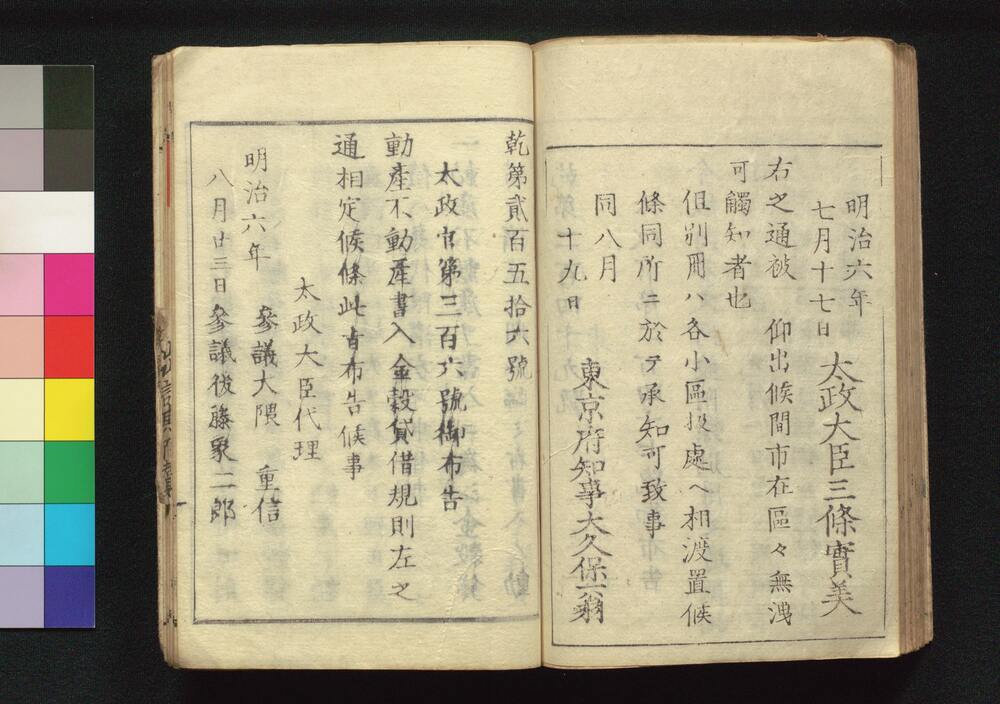 明治六年
七月十七日 太政大臣三條實美
右之通被 仰出候間市在區々無洩
可觸知者也
但別冊ハ各小區扱處ヘ相渡置候
條同所ニ於テ承知可致事
同八月
十九日 東京府知事大久保一翁
乾第貳百五拾六號
太政官第三百六號御布告
動產不動產書入金穀貸借規則左之
通相定候條此旨布告候事
太政大臣代理
明治六年 參議大隈 重信
八月廿三日參議後藤象二郎